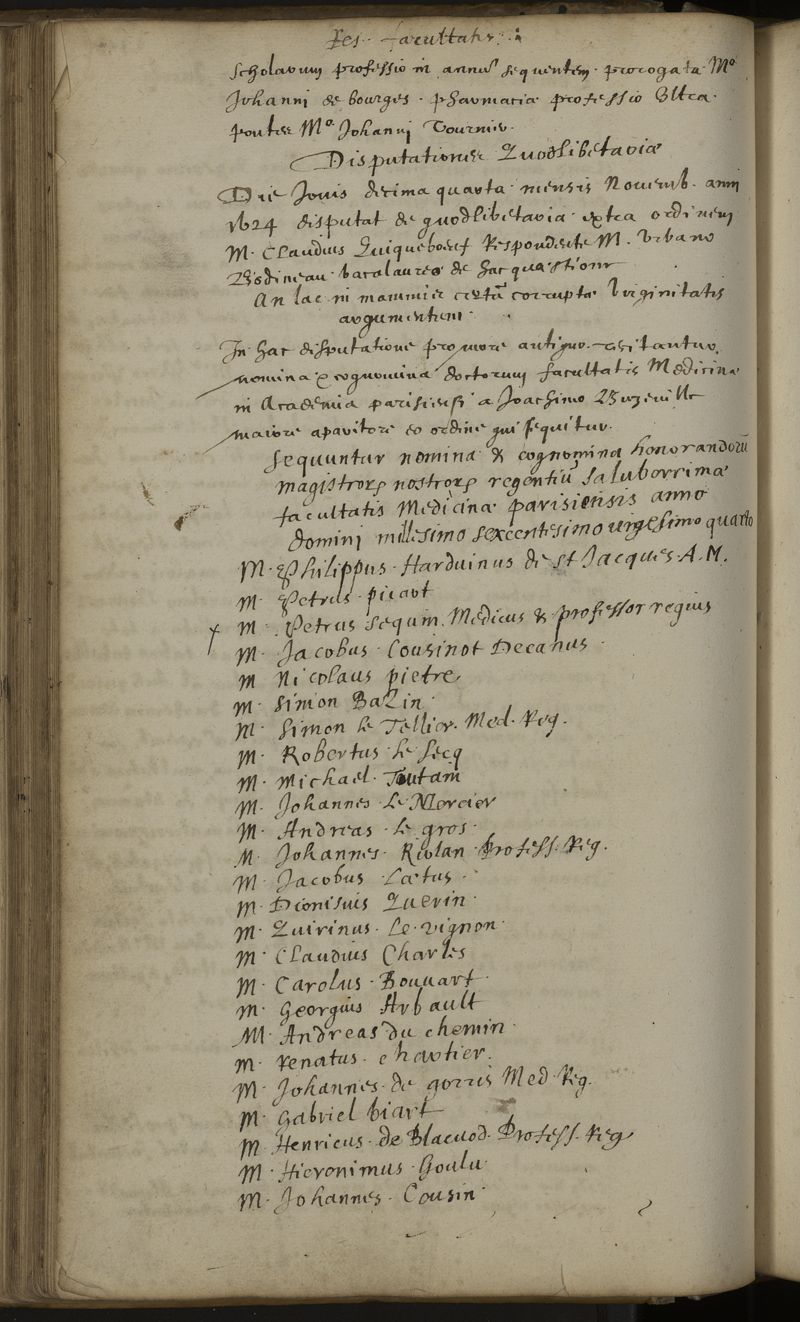 Res facultatis
scholarum professio in annū sequentem prorogata Mº
Johanni de bourges pharmaciæ professio Ultra
Mº Johanni Tournier.
Disputationes Quodlibetariæ
Die Jovis decima quarta mensis Novemb. anni
1624 disputat de quodlibetaria extra ordinem
M. Claudius Quiquebœuf Respondente M. Urbano
Bodineau baccalaureo de hac quæstione
An lac in mammis certū corruptæ Virginitatis
argumentum
In hac disputatione pro more antiquo recitantur
nomina & cognomina doctorum facultatis Medicinæ
in Academia parisiensi a Joachimo
maiore apparitore eo ordine qui sequitur.
sequuntur nomina & cognomina honorandorū
magistrorꝝ nostrorꝝ regentiū saluberrimæ
facultatis Medicinæ parisiensis anno
domini millesimo sexcentesimo vigesimo quarto
M. Philippus Harduinus de St Jacques A. M.
M Petrus picart
M. Petrus Seguin. Medicus & professor regius
M. Jacobus Cousinot Decanus
M Nicolaus pietre
M. Simon Bazin
M. Simon le Tellier. Med. Reg.
M. Robertus le Secq
M. Michael Toutain
M. Johannes Le Mercier
M. Andreas le gros
M. Johannes Riolan Profess. Reg.
M. Jacobus Lætus
M. Dionisius Guerin
M. Quirinus Le vignon
M. Claudius Charles
M. Carolus Bouvart
M. Georgius Arbault
M. Andreas du chemin
M. Renatus chartier.
M. Johannes de gorris Med Reg.
M. Gabriel biart
M Henricus de Blacuod Profess. Reg
M. Hieronimus Goulu
M. Johannes Cousin